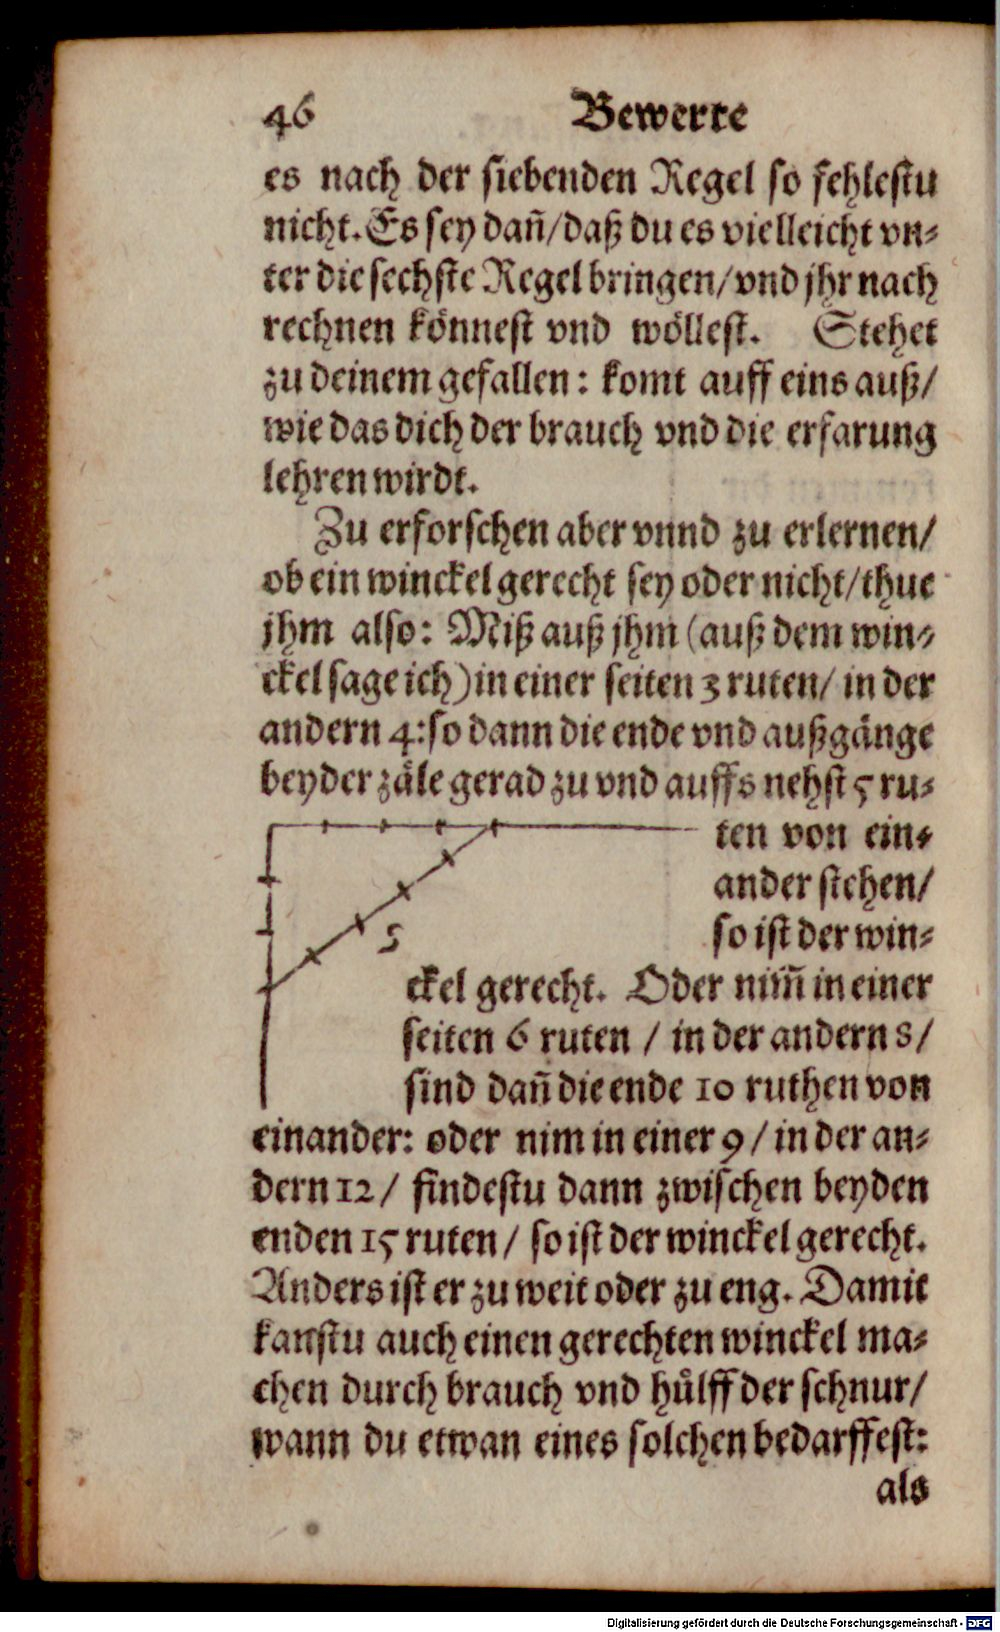 46 Bewerte
es nach der siebenden Regel so fehlestu
nicht. Es sey dañ/daß du es vielleicht vn⸗
ter die sechste Regel bringen/vnd jhr nach
rechnen könnest vnd wöllest. Stehet
zu deinem gefallen: komt auff eins auß/
wie das dich der brauch vnd die erfarung
lehren wirdt.
Zu erforschen aber vnnd zu erlernen/
ob ein winckel gerecht sey oder nicht/thue
jhm also: Miß auß jhm (auß dem win⸗
ckel sage ich) in einer seiten 3 ruten/ in der
andern 4: so dann die ende vnd außgänge
beyder zäle gerad zu vnd auffs nehst 5 ru⸗
ten von ein⸗
ander stehen/
so ist der win⸗
5
ckel gerecht. Oder nim̃ in einer
seiten 6 ruten / in der andern 8/
sind dañ die ende 10 ruthen von
einander: oder nim in einer 9/ in der an⸗
dern 12/ findestu dann zwischen beyden
enden 15 ruten/ so ist der winckel gerecht.
Anders ist er zu weit oder zu eng. Damit
kanstu auch einen gerechten winckel ma⸗
chen durch brauch vnd hůlff der schnur/
wann du etwan eines solchen bedarffest:
als
Digitalisierung gefördert durch die Deutsche Forschungsgemeinschaft - DFG